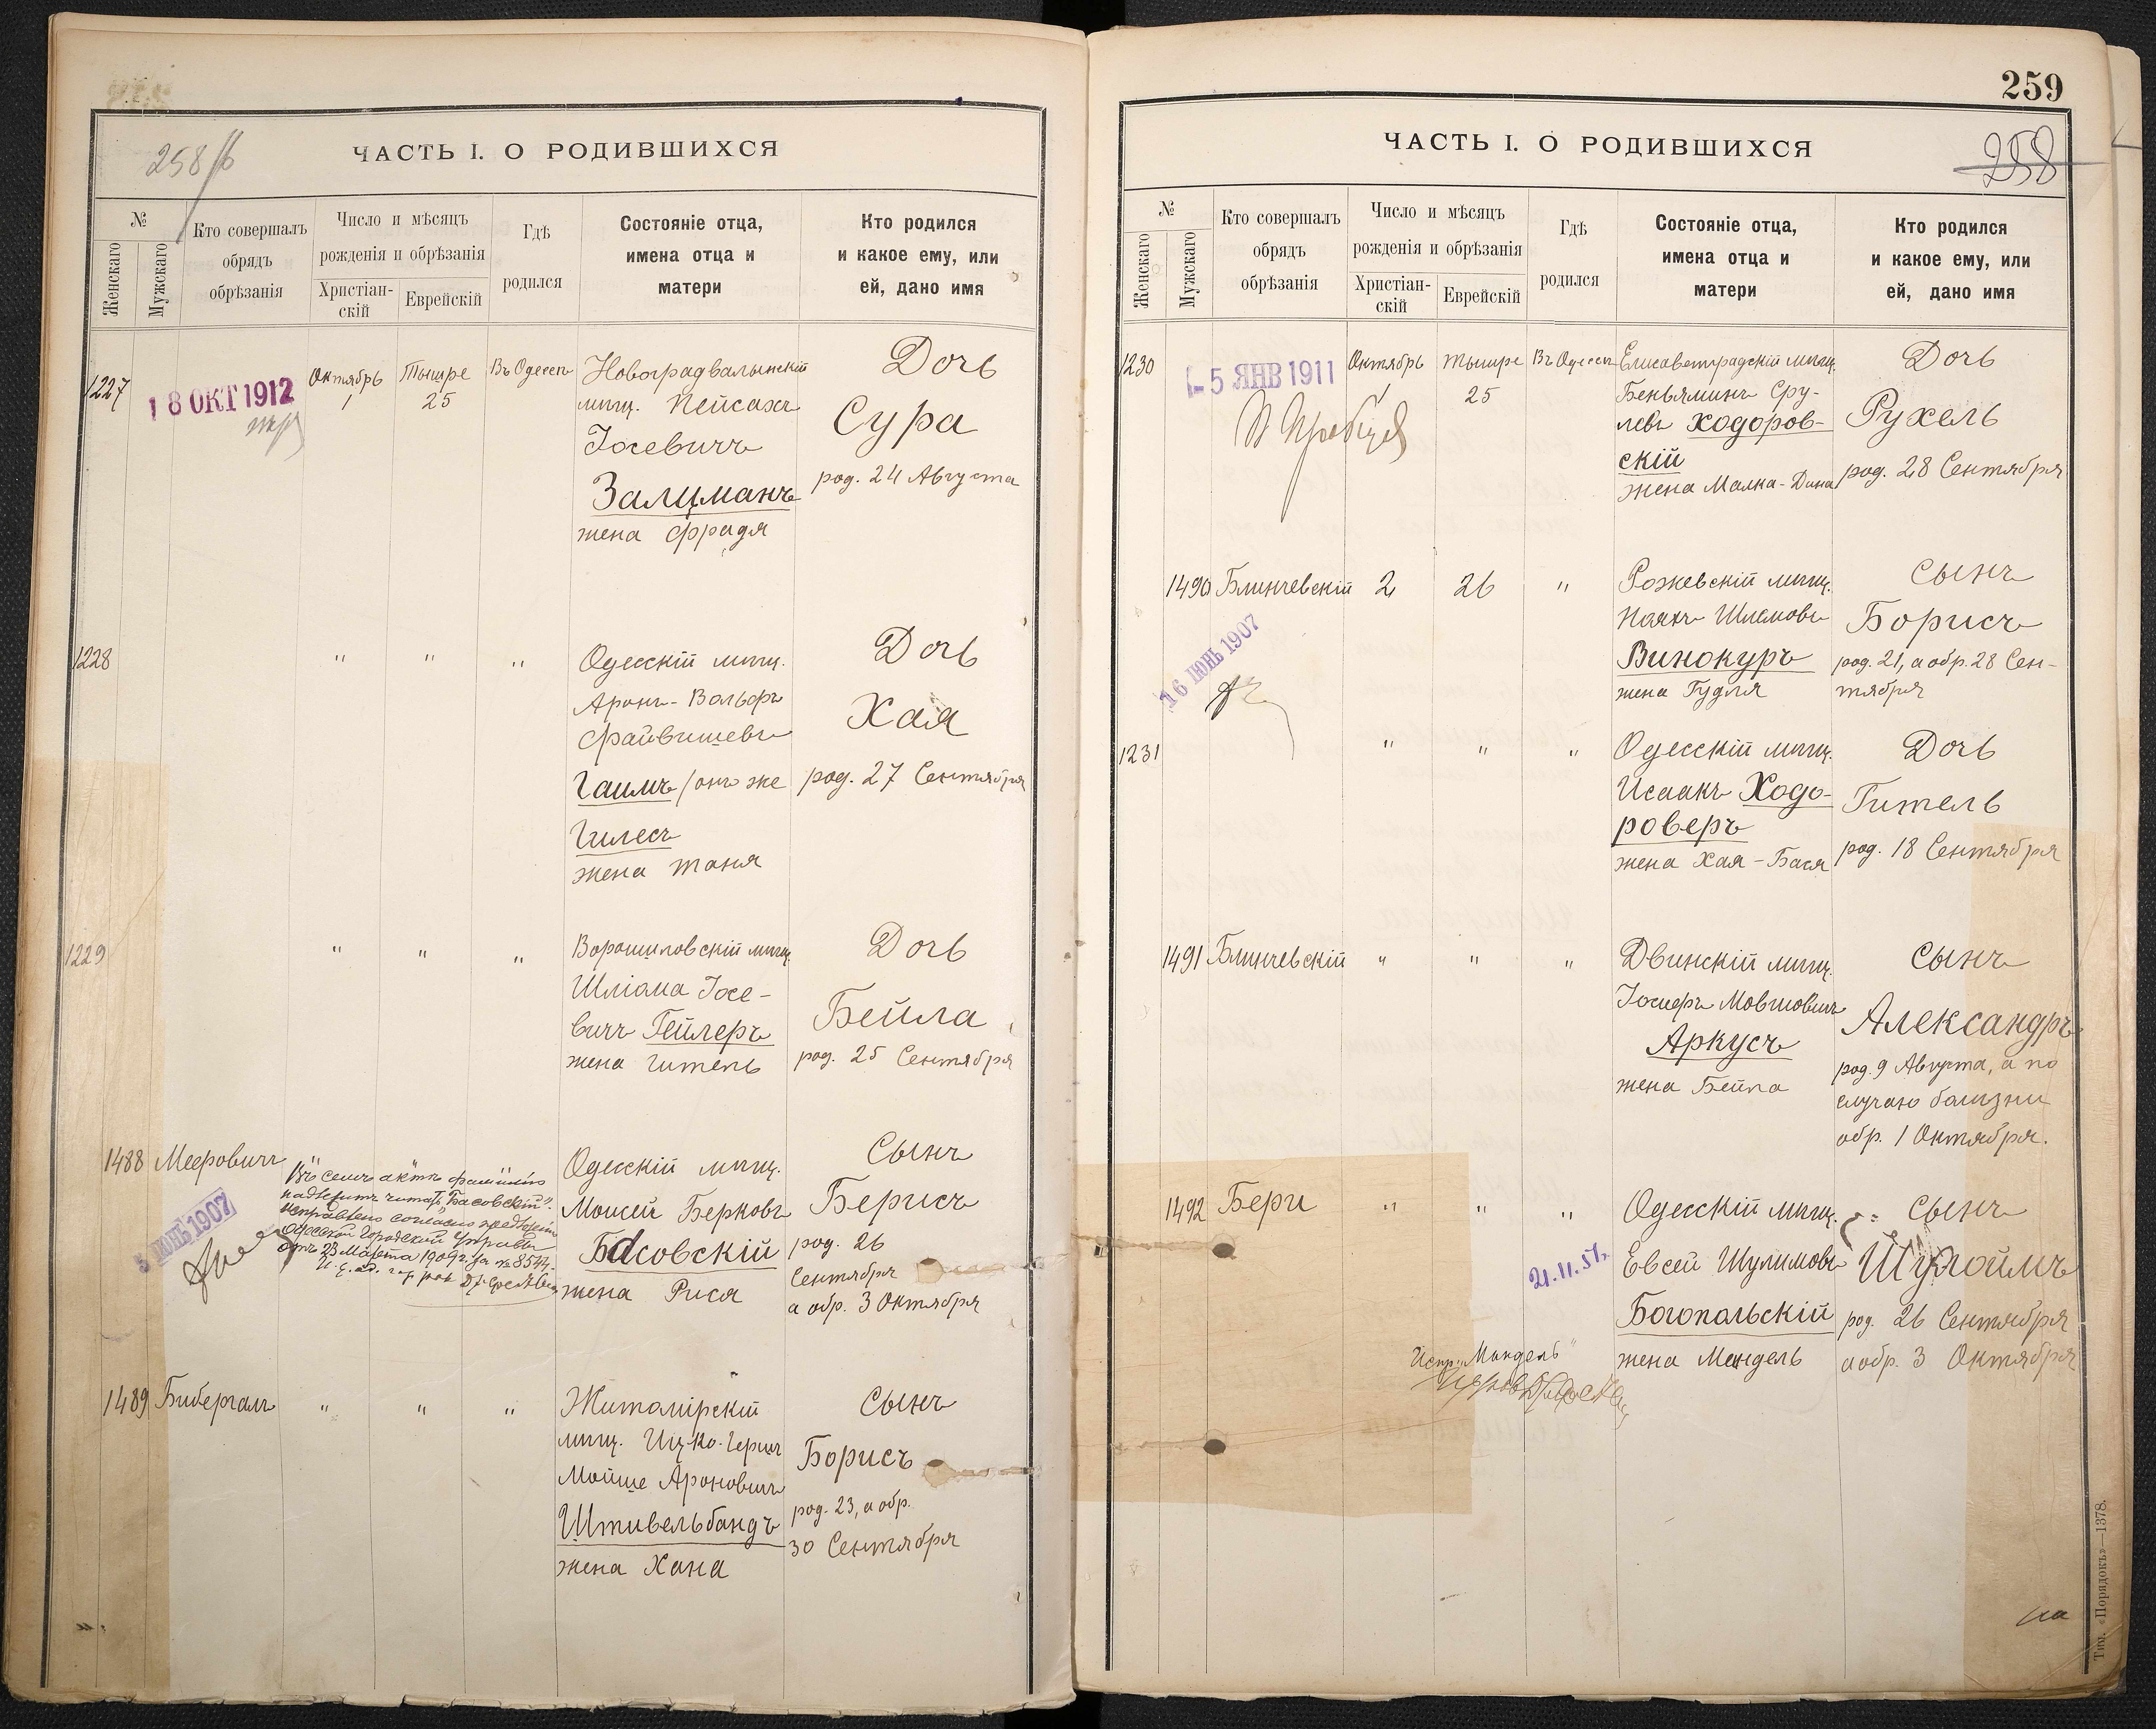 258/б
ЧАСТЬ I. О РОДИВШИХСЯ
№
Женскаго
Мужскаго
Кто совершалъ
обрядъ
обрѣзанія
Число и мѣсяцъ
рожденія и обрѣзанія
Христіан-
скій
Еврейскій
Гдѣ
родился
Состояніе отца,
имена отца и
матери
Кто родился
и какое ему, или
ей, дано имя
1227
18 ОКТ 1912
Октябрь
1
Тышре
25
Въ Одессѣ
Новоградволынскій
мѣщ. Пейсахъ
Іосевичъ
Залцманъ
жена Фрадя
Дочь
Сура
род. 24 Августа
1228
" " "
Одесскій мѣщ.
Аронъ-Вольфъ
Файвишевъ
Гаимъ /онъ же
Гилесъ
жена Таня
Дочь
Хая
род. 27 Сентября
1229
" " "
Ворошиловскій мѣщ.
Шліома Іосе-
вичъ Гейлеръ
жена Гитель
Дочь
Бейла
род. 25 Сентября
1488
Мееровичъ
5 ИЮНЬ 1907
Въ семъ актѣ фамилію
надлежитъ читать "Басовскій".
Исправлено согласно предложен.
Одесской Городской Управы
отъ 23 Марта 1909 г. за № 8544.
Одесскій мѣщ.
Моисей Берковъ
Басовскій
жена Рися
Сынъ
Берисъ
род. 26
Сентября
а обр. 3 Октября
1489
Бибергалъ
" " "
Житомірскій
мѣщ. Иц-ко-Герш
Мойше Ароновичъ
Штивельбандъ
жена Хана
Сынъ
Борисъ
род. 23, а обр.
30 Сентября
259
258
ЧАСТЬ I. О РОДИВШИХСЯ
№
Женскаго
Мужскаго
Кто совершалъ
обрядъ
обрѣзанія
Число и мѣсяцъ
рожденія и обрѣзанія
Христіан-
скій
Еврейскій
Гдѣ
родился
Состояніе отца,
имена отца и
матери
Кто родился
и какое ему, или
ей, дано имя
1230
-5 ЯНВ 1911
Октябрь
1
Тышре
25
Въ Одессѣ
Елисаветградскій мѣщ.
Беньяминъ Сру-
левъ Ходоров-
скій
жена Малка-Дина
Дочь
Рухель
род. 28 Сентября
1490
Блинчевскій
16 ИЮНЬ 1907
2
26
"
Рожевскій мѣщ.
Шлемовъ
Винокуръ
жена Гудля
Сынъ
Борисъ
род. 21, а обр. 28 Сен-
тября
1231
" " "
Одесскій мѣщ.
Исаакъ Ходо-
роверъ
жена Хая-Бася
Дочь
Гитель
род. 18 Сентября
1491
Блинчевскій
" " "
Двинскій мѣщ.
Іосифъ Мовшовичъ
Аркусъ
жена Бейла
Сынъ
Александръ
род. 9 Августа, а по
случаю болѣзни
обр. 1 Октября.
1492
Бери
" " "
21.11.51
Испр. "Мандель"
Одесскій мѣщ.
Евсей Шулимовъ
Богопольскій
жена Мандель
Сынъ
Шулоймъ
род. 26 Сентября
а обр. 3 Октября
на
Тип. «Порядокъ»—1378.